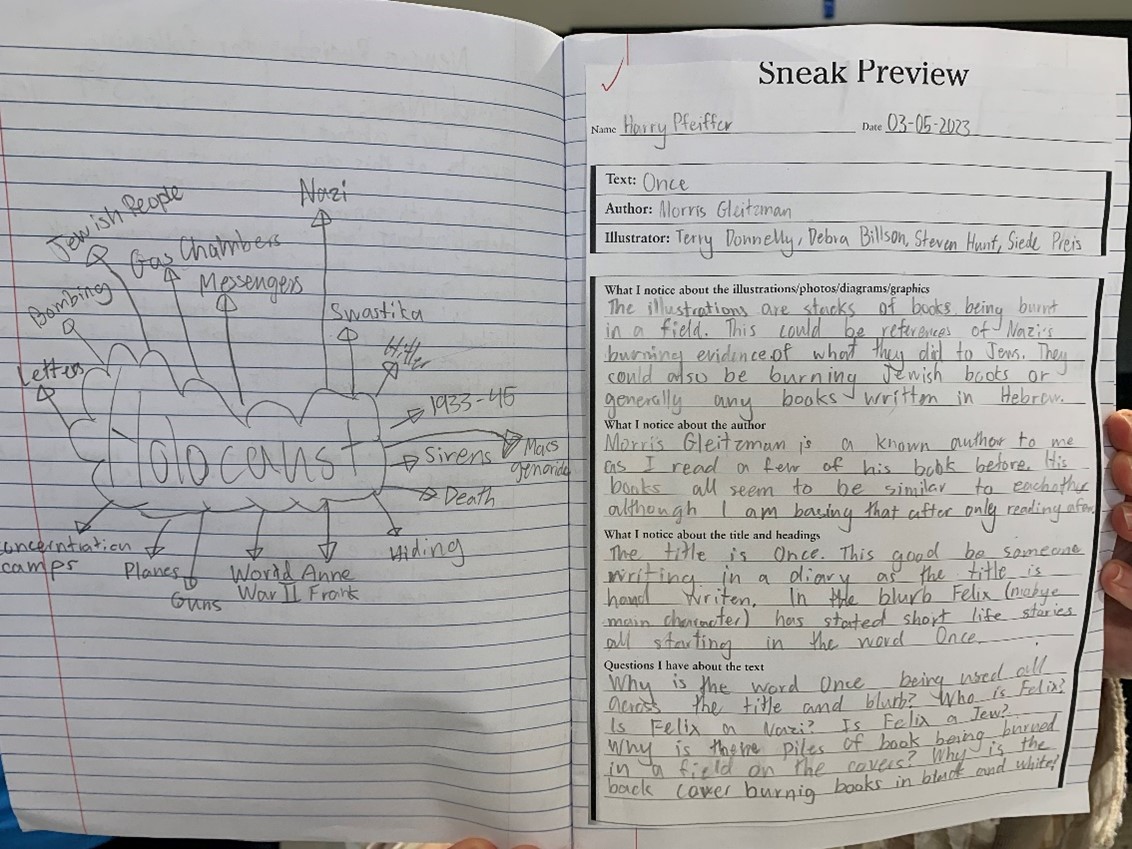 Jewish People
Gas Chambers
Nazi
Messengers
Bombing
Swastika
Hitler
Letters
1933-45
Holocaust
Sirens
Macs
genoride
Death
concerntiration
camps
Planes
Guns
World
War II
Anne
Frank
Hiding
Sneak Preview
Name Harry Pfeiffer Date 03-05-2023
Text: Once
Author: Morris Gleitzman
Illustrator: Terry Donnelly, Debra Billson, Steven Hunt, Siede Preis
What I notice about the illustrations/photos/diagrams/graphics
The illustrations are stacks of books being burnt
in a field. This could be references of Nazi's
burning evidence of what they did to Jews. They
could also be burning Jewish books or
generally any books written in Hebrew.
What I notice about the author
Morris Gleitzman is a known author to me
as I read a few of his book before. His
books all seem to be similar to eachother
although I am basing that after only reading afew.
What I notice about the title and headings
The title is Once. This good be someone
writing in a diary as the title is
hand writen. In the blurb Felix (mabye
main character) has stated short life stories
all starting in the word Once.
Questions I have about the text
Why is the word Once being used all
across the title and blurb? Who is Felix?
Is Felix a Nazi? Is Felix a Jew?
Why is there piles of book being burned
in a field on the covers? Why is the
back cover burnig books in black and white?